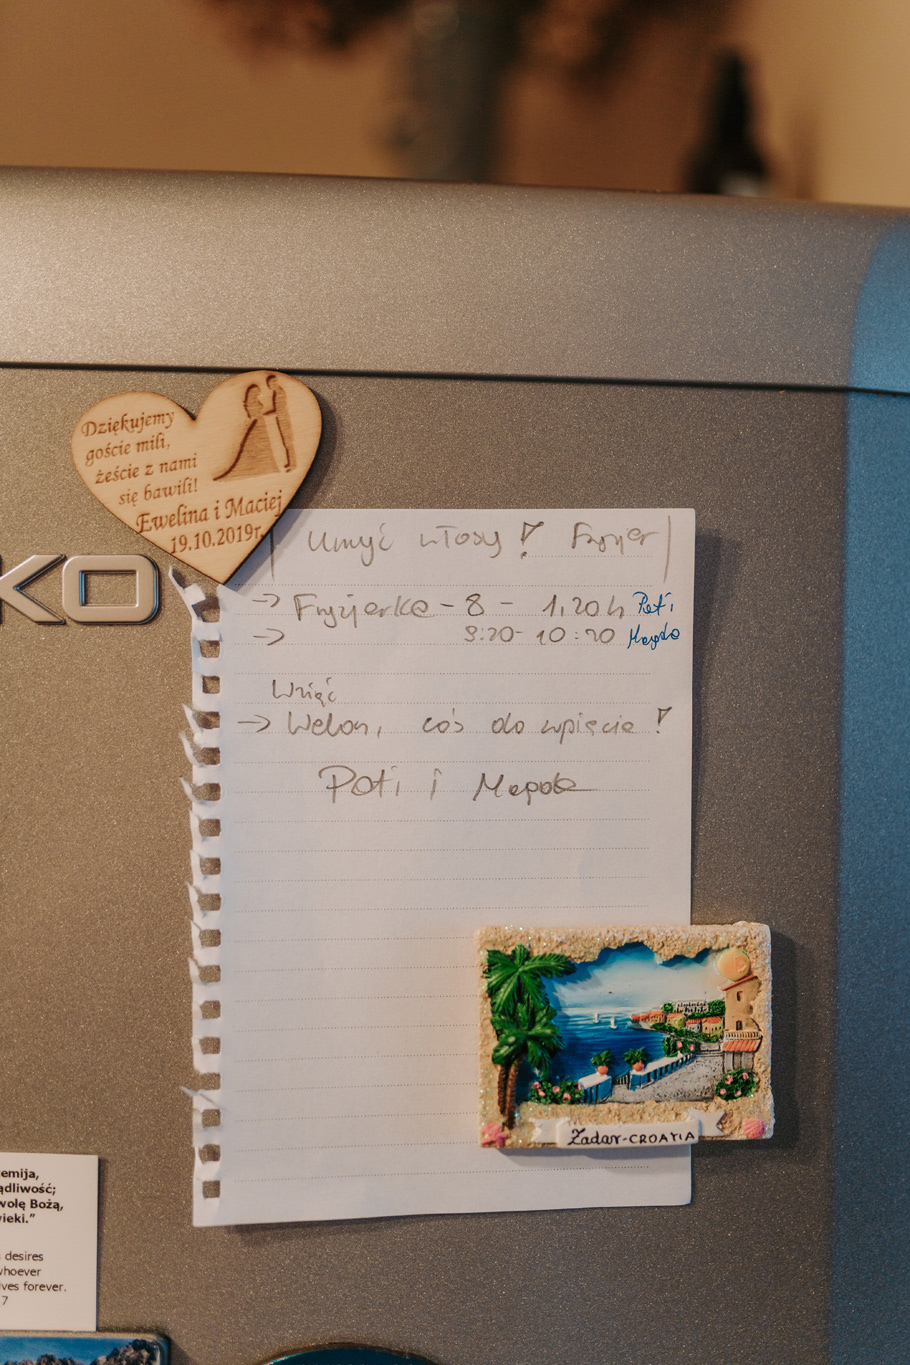 Dziękujemy
goście mili,
żeście z nami
się bawili!
Ewelina i Maciej
19.10.2019r.
KO
Umyć włosy! Fryzjer
→ Fryzjerka - 8 - 1,20h Pati
→ 9:20 - 10:20 Magda
Wziąć
→ Welon, coś do wpięcia!
Pati i Magda
Zadar-CROATIA
emija,
ądliwość;
wolę Bożą,
wieki.”
desires
whoever
ves forever.
7